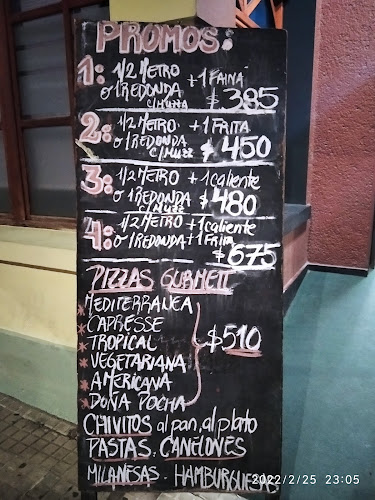 PROMOS:
1: 1/2 METRO + 1 FAINÁ
o 1 REDONDA
c/MUZZA $385
2: 1/2 METRO + 1 FRITA
o 1 REDONDA
c/MUZZ $450
3: 1/2 METRO + 1 caliente
o 1 REDONDA
c/MUZZ $480
4: 1/2 METRO + 1 caliente
o 1 REDONDA + 1 FRITA
$675
PIZZAS GURMETT
*MEDITERRANEA
*CAPRESSE
*TROPICAL $510
*VEGETARIANA
*AMERICANA
*DOÑA POCHA
CHIVITOS al pan, al plato
PASTAS. CANELONES
MILANESAS - HAMBURGUESAS
2022/2/25 23:05